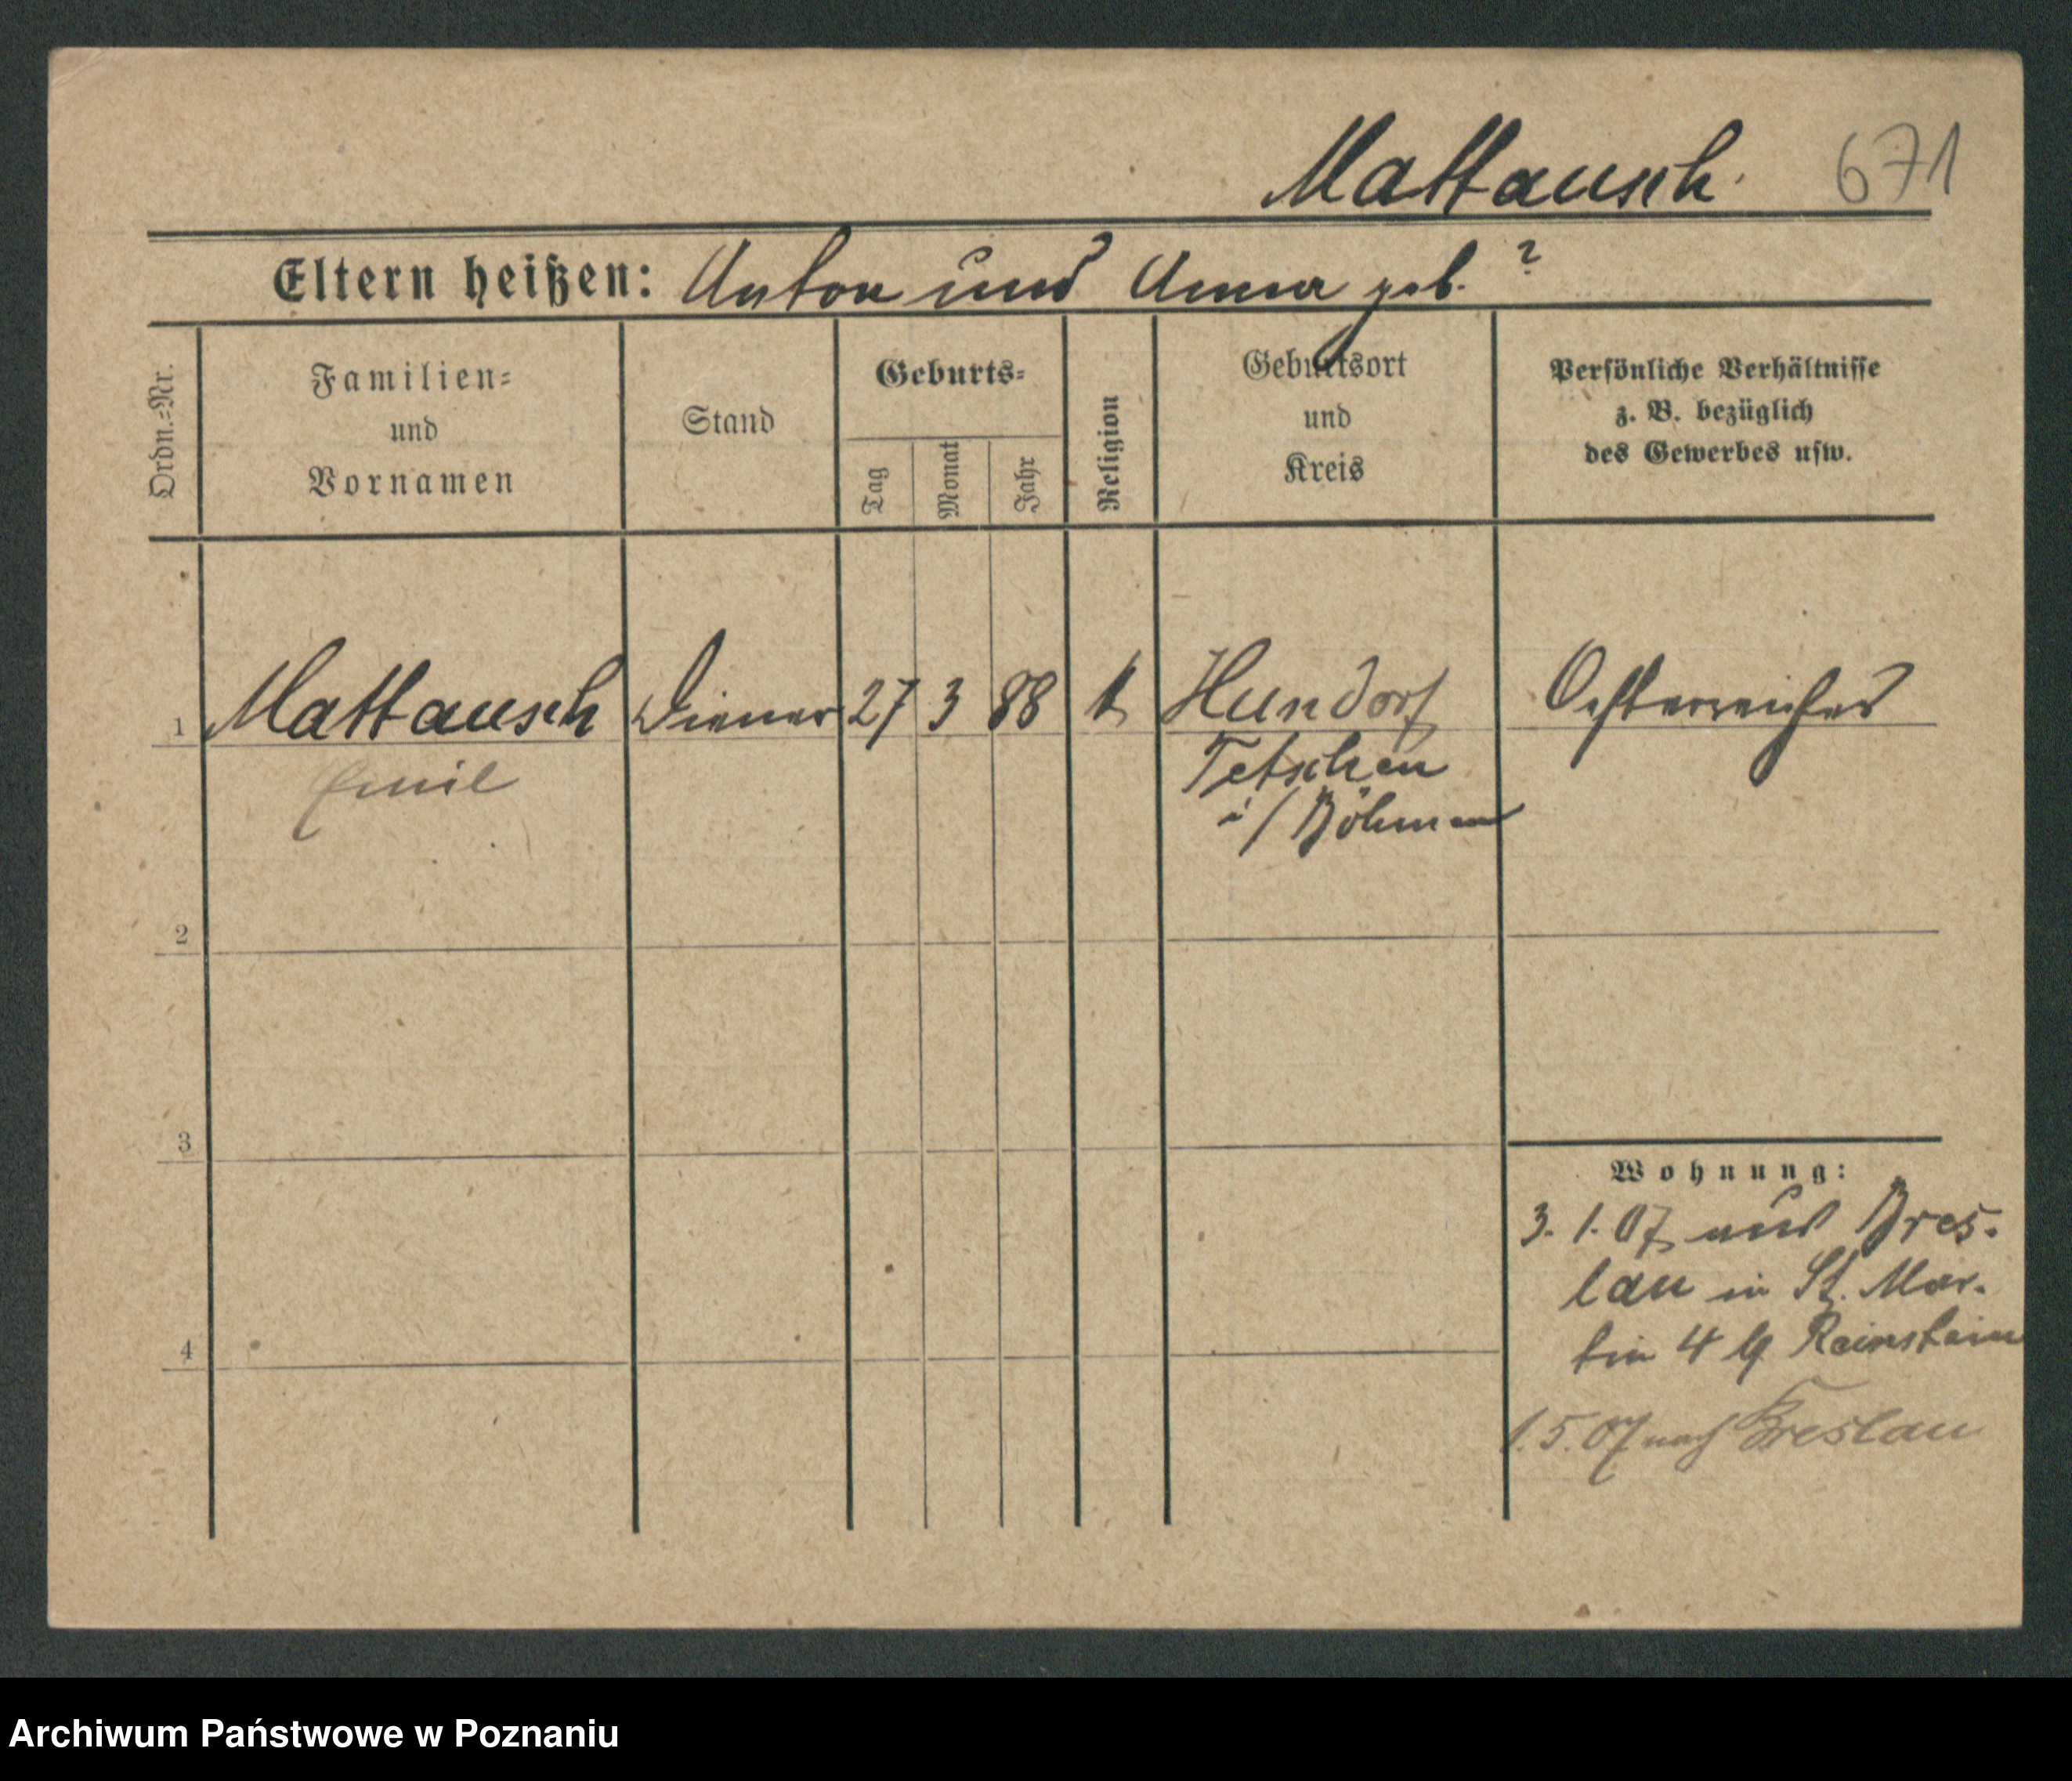 Mattausch. 671
Eltern heißen: Anton und Anna geb. ?
Ordn.=Nr.
Familien=
und
Vornamen
Stand
Geburts=
Tag
Monat
Jahr
Religion
Geburtsort
und
Kreis
Persönliche Verhältnisse
z. B. bezüglich
des Gewerbes usw.
1 Mattausch Diener 27 3 88 k Hundorf Oesterreicher
Emil
Tetschen
i/Böhmen
2
3
4
Wohnung:
3. 1. 07 aus Bres-
lau in St. Mar-
tin 4 b Reinstein
1. 5. 07 nach Breslau
Archiwum Państwowe w Poznaniu